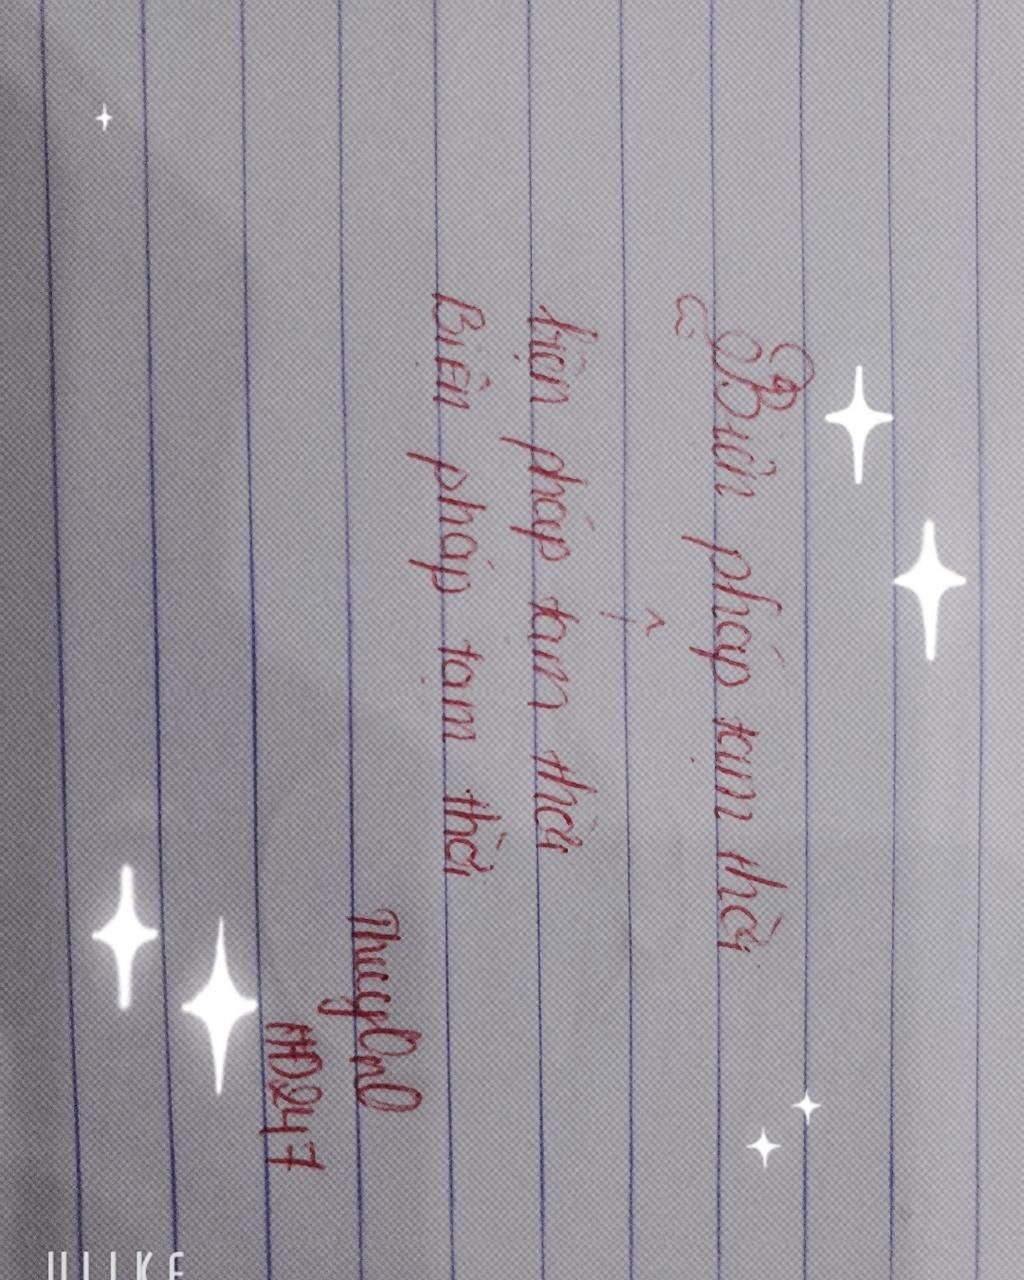 Biện pháp tạm thời
biện pháp tạm thời
Biện pháp tạm thời
HD247
ULIKE